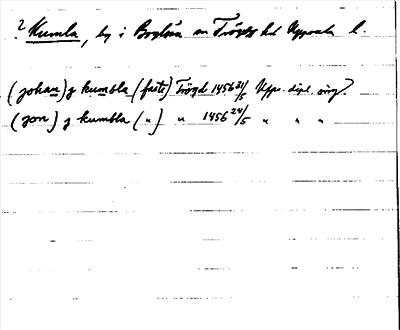 ? Kumla, by i Boglösa sn Trögds hd Uppsala l.
(johan) j kumbla (faste) Trögd 1456 24/5 Upps. dipl. orig?
(jon) j kumbla (") " 1456 24/5 " " "